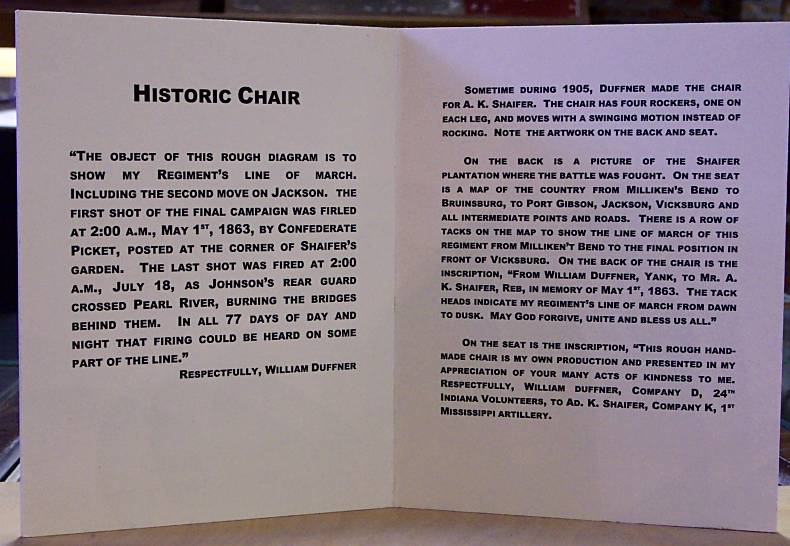 HISTORIC CHAIR
"THE OBJECT OF THIS ROUGH DIAGRAM IS TO
SHOW MY REGIMENT'S LINE OF MARCH.
INCLUDING THE SECOND MOVE ON JACKSON. THE
FIRST SHOT OF THE FINAL CAMPAIGN WAS FIRLED
AT 2:00 A.M., MAY 1ST, 1863, BY CONFEDERATE
PICKET, POSTED AT THE CORNER OF SHAIFER'S
GARDEN. THE LAST SHOT WAS FIRED AT 2:00
A.M., JULY 18, AS JOHNSON'S REAR GUARD
CROSSED PEARL RIVER, BURNING THE BRIDGES
BEHIND THEM. IN ALL 77 DAYS OF DAY AND
NIGHT THAT FIRING COULD BE HEARD ON SOME
PART OF THE LINE."
RESPECTFULLY, WILLIAM DUFFNER
SOMETIME DURING 1905, DUFFNER MADE THE CHAIR
FOR A. K. SHAIFER. THE CHAIR HAS FOUR ROCKERS, ONE ON
EACH LEG, AND MOVES WITH A SWINGING MOTION INSTEAD OF
ROCKING. NOTE THE ARTWORK ON THE BACK AND SEAT.
ON THE BACK IS A PICTURE OF THE SHAIFER
PLANTATION WHERE THE BATTLE WAS FOUGHT. ON THE SEAT
IS A MAP OF THE COUNTRY FROM MILLIKEN'S BEND TO
BRUINSBURG, TO PORT GIBSON, JACKSON, VICKSBURG AND
ALL INTERMEDIATE POINTS AND ROADS. THERE IS A ROW OF
TACKS ON THE MAP TO SHOW THE LINE OF MARCH OF THIS
REGIMENT FROM MILLIKEN'T BEND TO THE FINAL POSITION IN
FRONT OF VICKSBURG. ON THE BACK OF THE CHAIR IS THE
INSCRIPTION, "FROM WILLIAM DUFFNER, YANK, TO MR. A.
K. SHAIFER, REB, IN MEMORY OF MAY 1ST, 1863. THE TACK
HEADS INDICATE MY REGIMENT'S LINE OF MARCH FROM DAWN
TO DUSK. MAY GOD FORGIVE, UNITE AND BLESS US ALL."
ON THE SEAT IS THE INSCRIPTION, "THIS ROUGH HAND-
MADE CHAIR IS MY OWN PRODUCTION AND PRESENTED IN MY
APPRECIATION OF YOUR MANY ACTS OF KINDNESS TO ME.
RESPECTFULLY, WILLIAM DUFFNER, COMPANY D, 24TH
INDIANA VOLUNTEERS, TO AD. K. SHAIFER, COMPANY K, 1ST
MISSISSIPPI ARTILLERY.